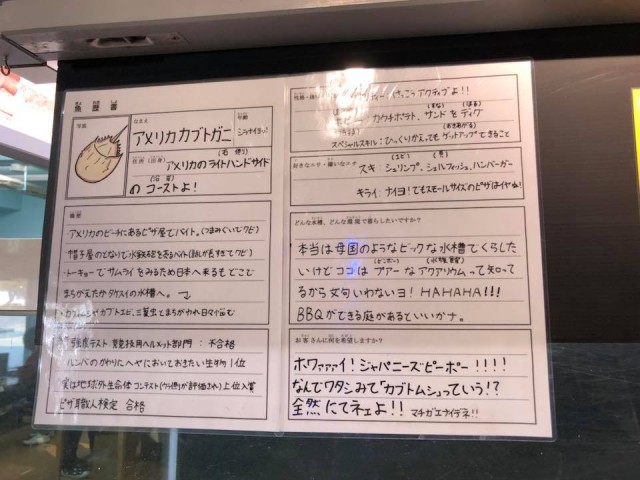 魚歴書
写真
なまえ
アメリカカブトガニ
年齢
シラナイヨッ!
住所
(右 側)
アメリカのライトハンドサイド
(沿岸)
の コーストよ!
略歴
・アメリカのビーチにあるピザ屋でバイト。(つまみぐいでクビ)
帽子屋のとなりで
・トーキョーでサムライをみるため日本へ来るもどこで
まちがえたか タケスイの水槽へ。
・カブトムシやカブトエビ、三葉虫とまちがわれ日々悩む
強度テスト 競技用ヘルメット部門 : 不合格
ルンバのかわりにヘヤにおいておきたい生物 1位
地球外生命体コンテスト(ウラ側が評価され)上位入賞
ピザ耳職人検定 合格
けっこうアクティブよ!!
(すな) (ほる)
サンドをディグ
(おきあがる)
スペシャルスキル:ひっくりかえってもゲットアップできること
好きなエサ・嫌いなエサ
(エビ) (貝)
スキ:シュリンプ、シェルフィッシュ、ハンバーガー
キライ:ナイヨ!でもスモールサイズのピザはイヤね!
どんな水槽、どんな環境で暮らしたいですか?
本当は母国のようなビックな水槽でくらした
(ビンボー) (水族館)
いけど ココは プアーな アクアリウムって知って
るから文句いわないヨ! HAHAHA!!!
BBQができる庭があるといいかナ。
お客さんに何を希望しますか?
ホワァァァイ! ジャパニーズピーポー!!!!
なんでワタシみて「カブトムシ」っていう!?
全然にてネェよ!! マチガエナイデネ!!